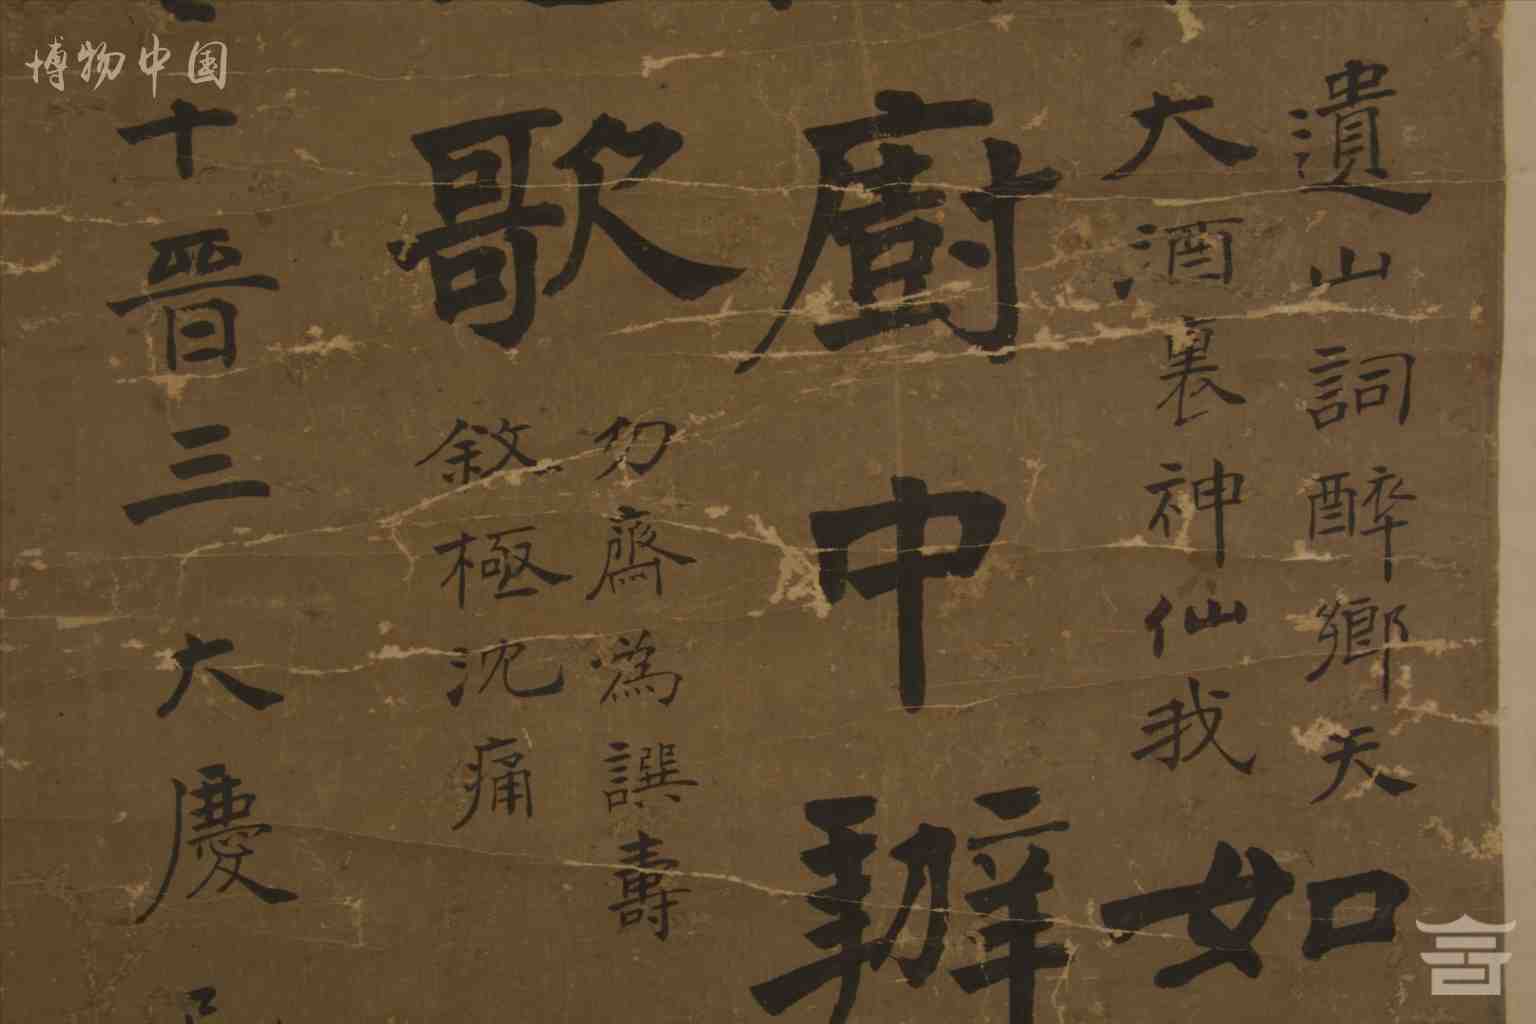 博物中国
遺山詞醉鄉天
大酒裏神仙我
如
廚中辦
歌
勿齋為譔壽
敘極沈痛
十晉三大慶